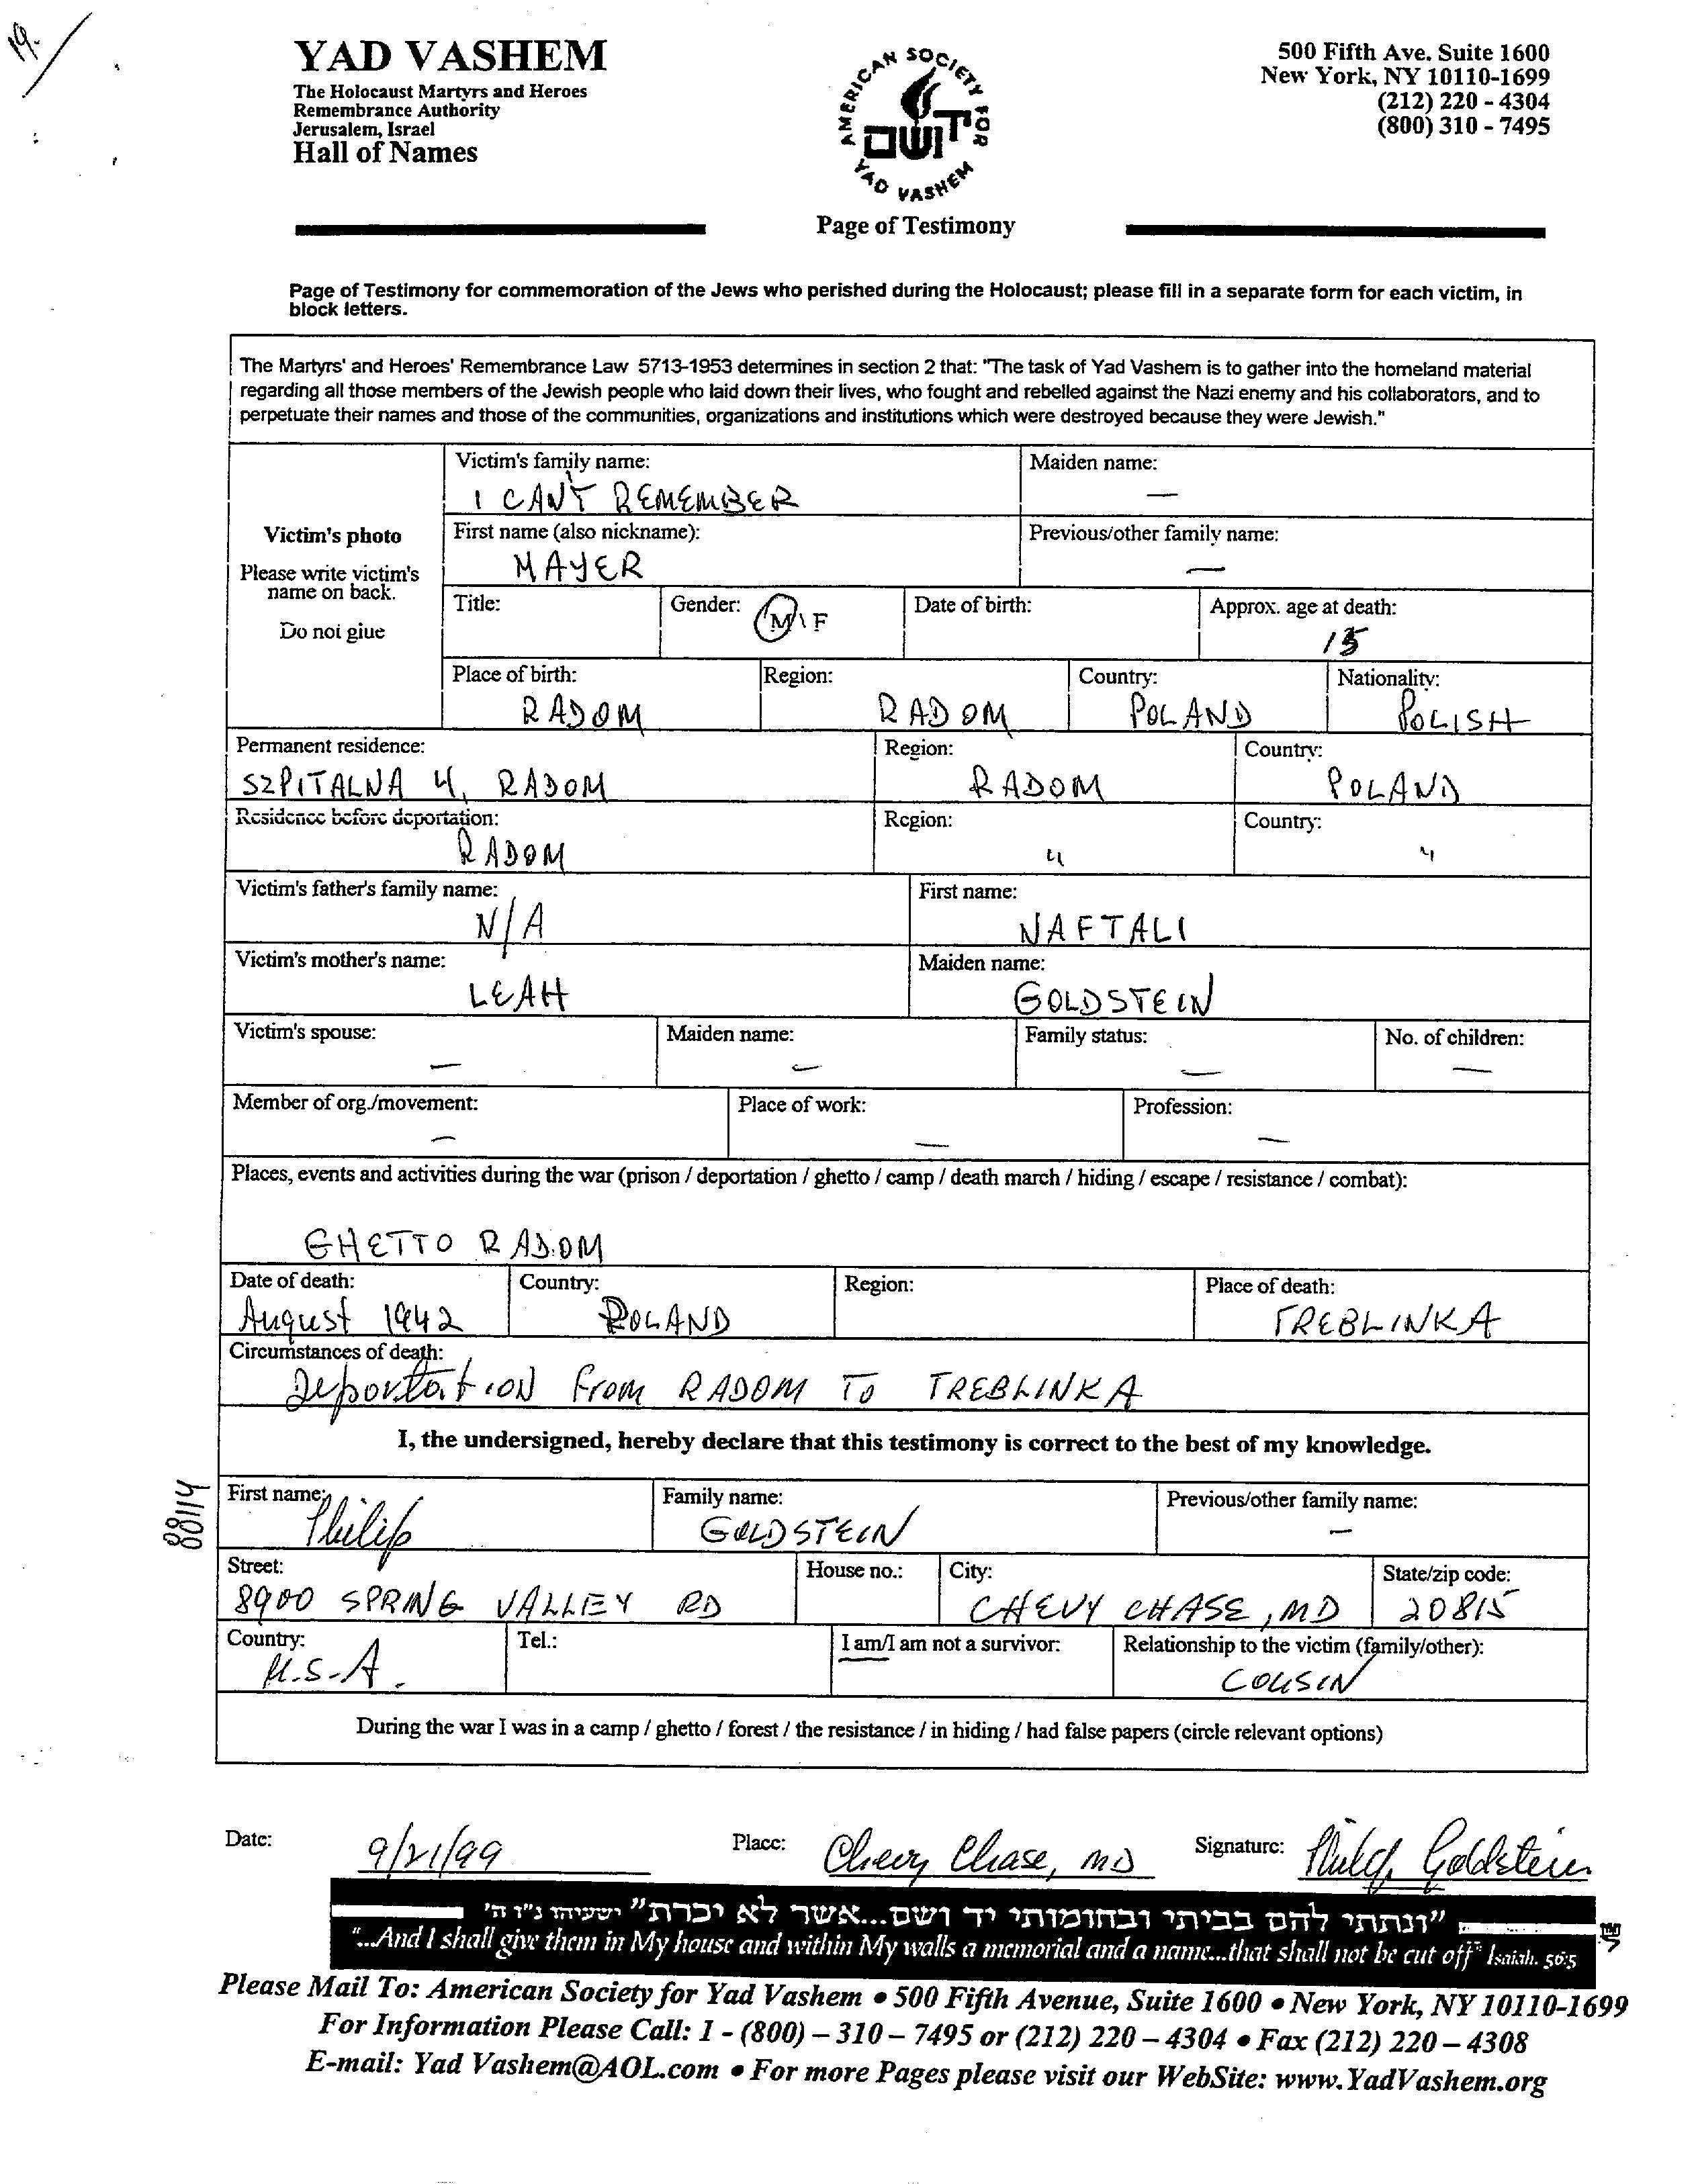 19.
YAD VASHEM
The Holocaust Martyrs and Heroes
Remembrance Authority
Jerusalem, Israel
Hall of Names
AMERICAN SOCIETY FOR
YAD VASHEM
יד ושם
500 Fifth Ave. Suite 1600
New York, NY 10110-1699
(212) 220 - 4304
(800) 310 - 7495
Page of Testimony
Page of Testimony for commemoration of the Jews who perished during the Holocaust; please fill in a separate form for each victim, in
block letters.
The Martyrs' and Heroes' Remembrance Law 5713-1953 determines in section 2 that: "The task of Yad Vashem is to gather into the homeland material
regarding all those members of the Jewish people who laid down their lives, who fought and rebelled against the Nazi enemy and his collaborators, and to
perpetuate their names and those of the communities, organizations and institutions which were destroyed because they were Jewish."
Victim's photo
Please write victim's
name on back.
Do not glue
Victim's family name: Maiden name:
I CAN'T REMEMBER —
First name (also nickname): Previous/other family name:
MAYER —
Title: Gender: M \ F Date of birth: Approx. age at death:
15
Place of birth: Region: Country: Nationality:
RADOM RADOM POLAND POLISH
Permanent residence: Region: Country:
SZPITALNA 4, RADOM RADOM POLAND
Residence before deportation: Region: Country:
RADOM " "
Victim's father's family name: First name:
N/A NAFTALI
Victim's mother's name: Maiden name:
LEAH GOLDSTEIN
Victim's spouse: Maiden name: Family status: No. of children:
— — — —
Member of org./movement: Place of work: Profession:
— — —
Places, events and activities during the war (prison / deportation / ghetto / camp / death march / hiding / escape / resistance / combat):
GHETTO RADOM
Date of death: Country: Region: Place of death:
August 1942 POLAND TREBLINKA
Circumstances of death:
Deportation from RADOM TO TREBLINKA
I, the undersigned, hereby declare that this testimony is correct to the best of my knowledge.
88114
First name: Family name: Previous/other family name:
Philip GOLDSTEIN —
Street: House no.: City: State/zip code:
8900 SPRING VALLEY RD CHEVY CHASE, MD 20815
Country: Tel.: I am/I am not a survivor: Relationship to the victim (family/other):
U.S.A. COUSIN
During the war I was in a camp / ghetto / forest / the resistance / in hiding / had false papers (circle relevant options)
Date: 9/21/99 Place: Chevy Chase, MD Signature: Philip Goldstein
"ונתתי להם בביתי ובחומותי יד ושם...אשר לא יכרת" ישעיהו נ"ו ה'
"...And I shall give them in My house and within My walls a memorial and a name...that shall not be cut off" Isaiah. 56:5
Please Mail To: American Society for Yad Vashem • 500 Fifth Avenue, Suite 1600 • New York, NY 10110-1699
For Information Please Call: 1 - (800) – 310 – 7495 or (212) 220 – 4304 • Fax (212) 220 – 4308
E-mail: Yad Vashem@AOL.com • For more Pages please visit our WebSite: www.YadVashem.org